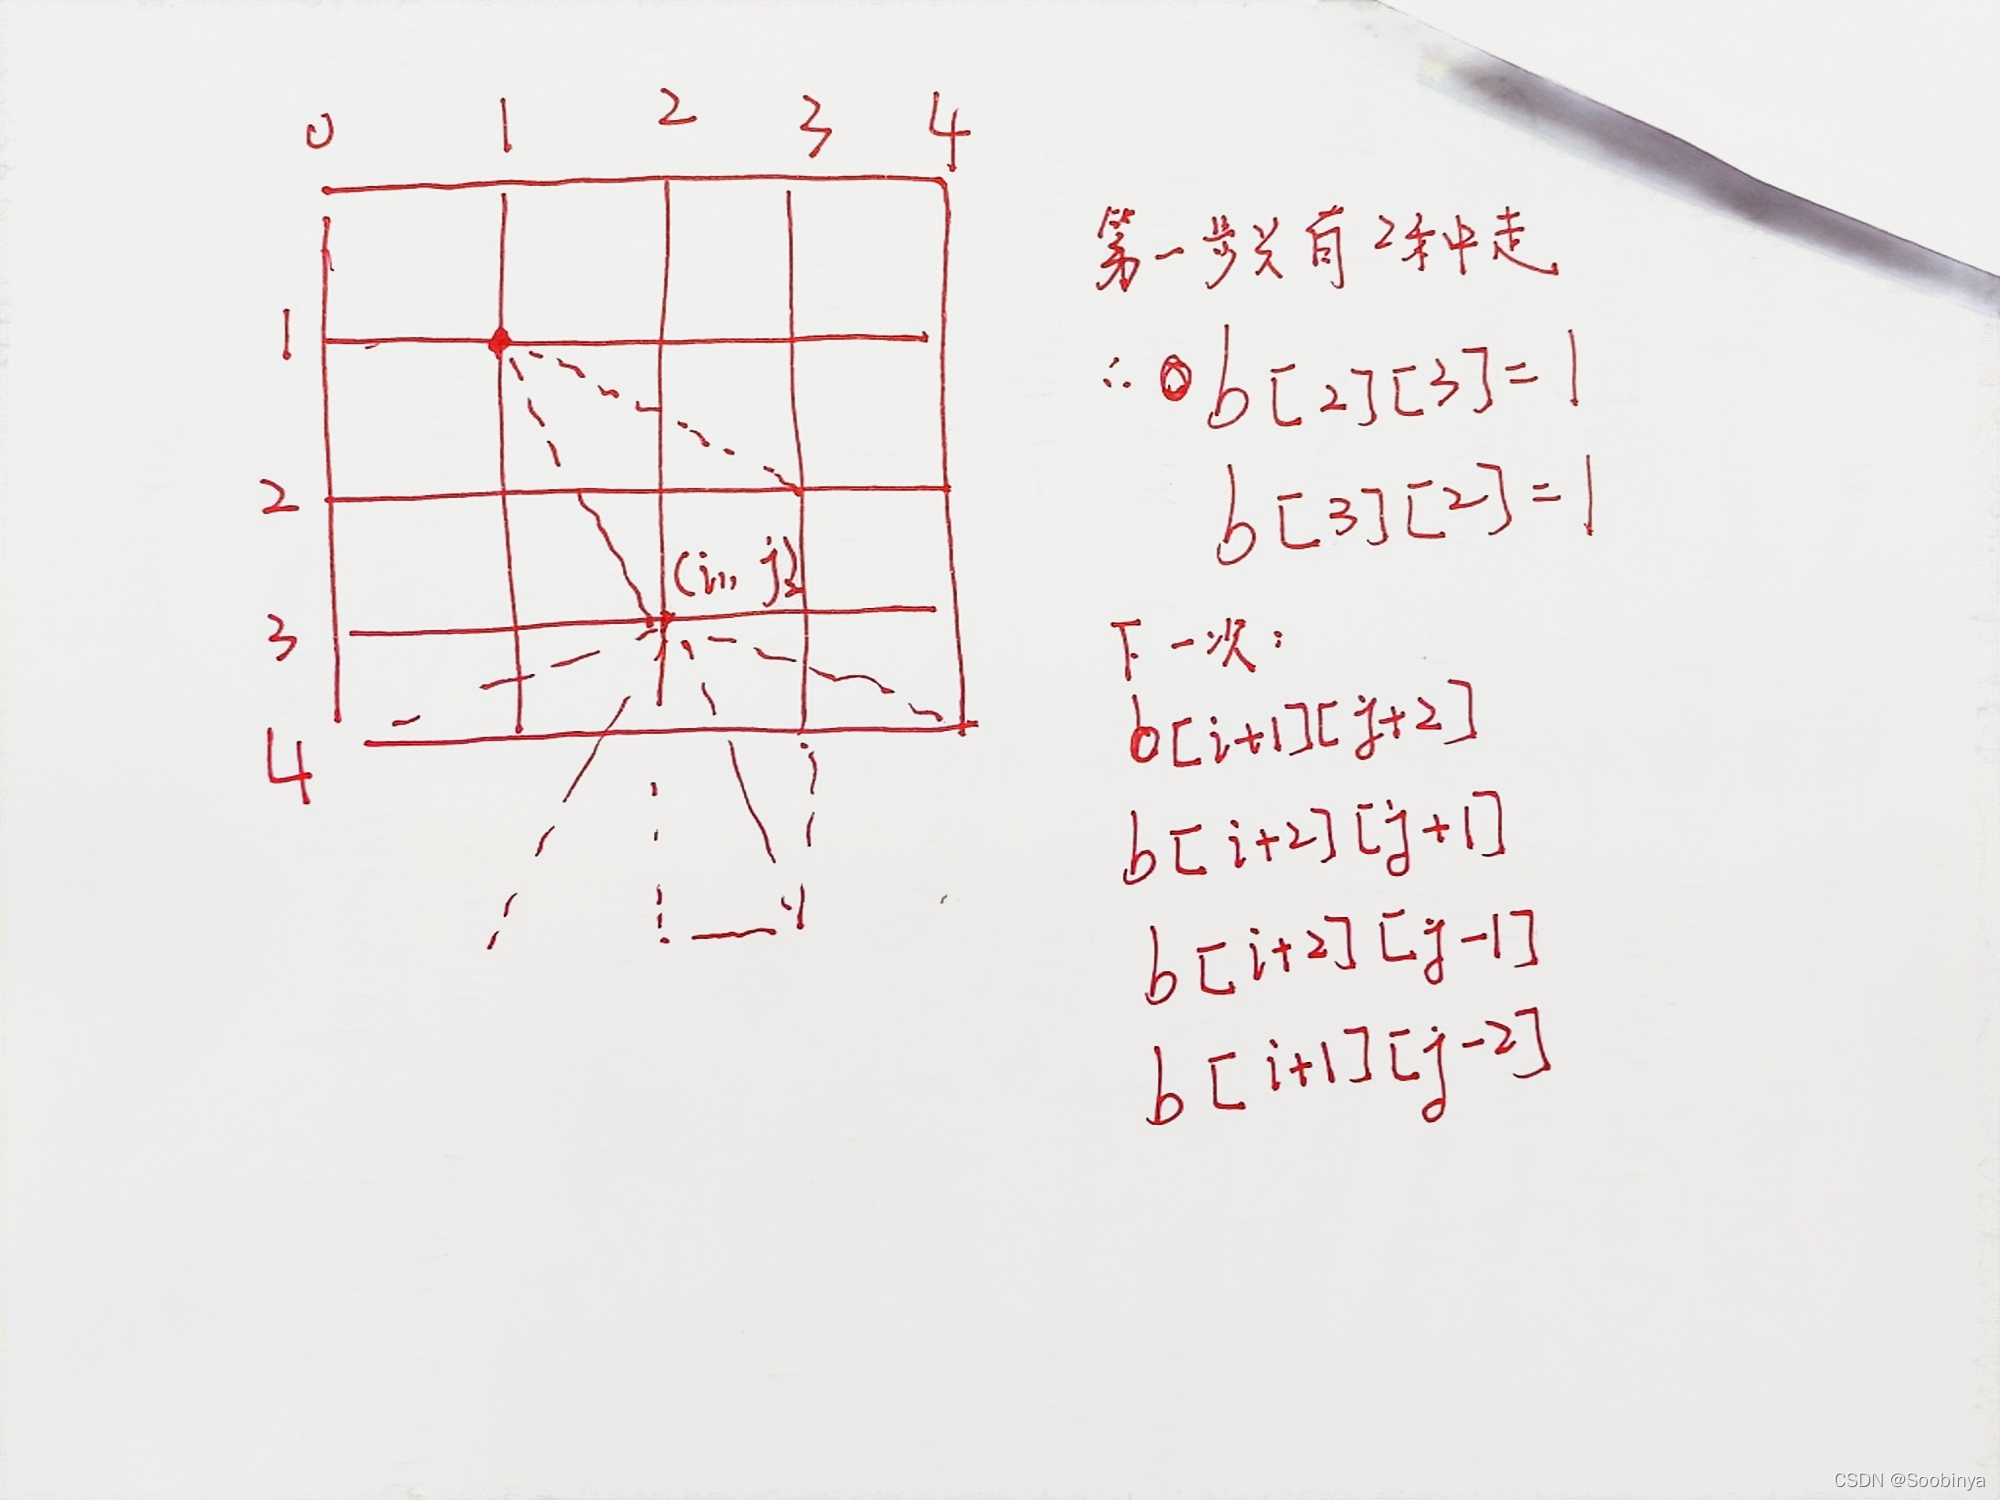 0 1 2 3 4
1
2
(i, j)
3
4
第一步只有2种走
∴ b[2][3]=1
b[3][2]=1
下一次:
b[i+1][j+2]
b[i+2][j+1]
b[i+2][j-1]
b[i+1][j-2]
CSDN @Soobinya